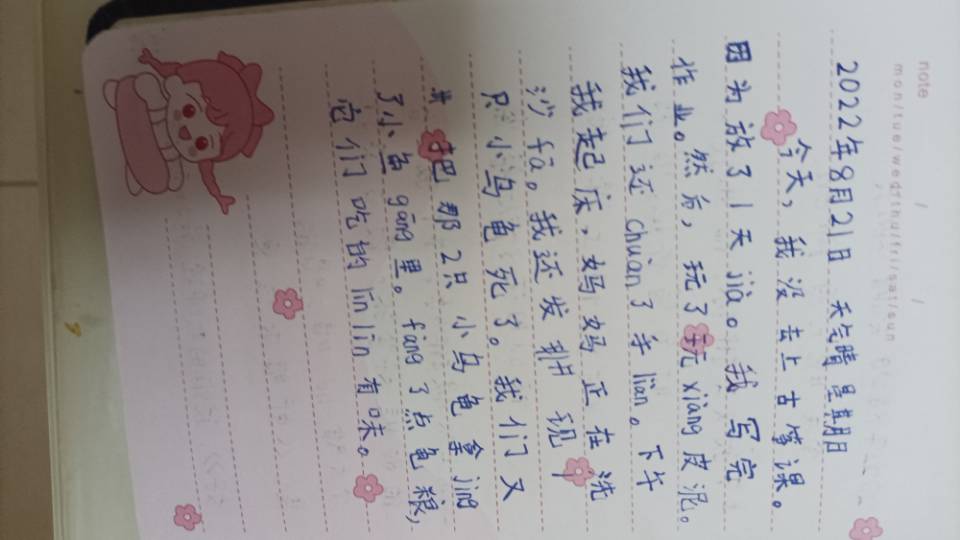 note
mon/tue/wed/thu/fri/sat/sun
2022年8月21日 天气晴 星期日
今天，我没去上古筝课。
因为放了1天jià。我写完
作业。然后，玩了玩xiàng皮泥。
我们还chuàn了手liàn。下午
我起床，妈妈正在洗
沙fā。我还发现 1
只小乌龟死了。我们又
把那2只小乌龟拿jìng
了小鱼gāng里。fàng了点龟粮，
它们吃的līn līn有味。